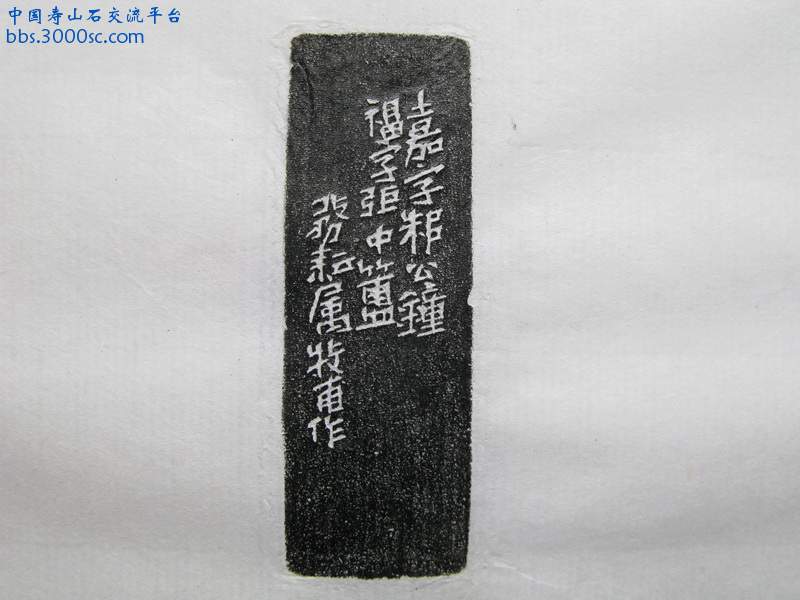 中国寿山石交流平台
bbs.3000sc.com
嘉字邾公鐘
福字弡中簠
發耘属牧甫作